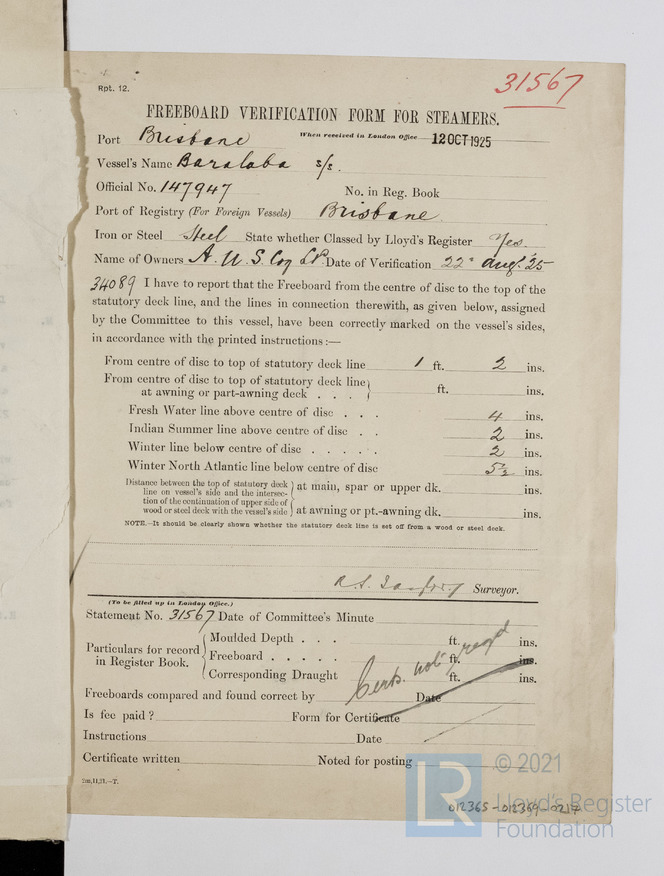 31567
Rpt. 12.
FREEBOARD VERIFICATION FORM FOR STEAMERS.
Port Brisbane When received in London Office 12 OCT 1925
Vessel's Name Baralaba s/s.
Official No. 147947 No. in Reg. Book
Port of Registry (For Foreign Vessels) Brisbane
Iron or Steel Steel State whether Classed by Lloyd's Register Yes
Name of Owners A. U. S. Coy Ld. Date of Verification 22d Aug. '25
34089 I have to report that the Freeboard from the centre of disc to the top of the
statutory deck line, and the lines in connection therewith, as given below, assigned
by the Committee to this vessel, have been correctly marked on the vessel's sides,
in accordance with the printed instructions :—
From centre of disc to top of statutory deck line 1 ft. 2 ins.
From centre of disc to top of statutory deck line
at awning or part-awning deck . . . ft. ins.
Fresh Water line above centre of disc . . . 4 ins.
Indian Summer line above centre of disc . . 2 ins.
Winter line below centre of disc . . . . . 2 ins.
Winter North Atlantic line below centre of disc 5½ ins.
Distance between the top of statutory deck
line on vessel's side and the intersec-
tion of the continuation of upper side of
wood or steel deck with the vessel's side
at main, spar or upper dk. ins.
at awning or pt.-awning dk. ins.
NOTE.—It should be clearly shown whether the statutory deck line is set off from a wood or steel deck.
Surveyor.
(To be filled up in London Office.)
Statement No. 31567 Date of Committee's Minute
Particulars for record
in Register Book.
Moulded Depth . . . ft. ins.
Freeboard . . . . . ft. ins.
Corresponding Draught ft. ins.
Certs. not reqd
Freeboards compared and found correct by Date
Is fee paid ? Form for Certificate
Instructions Date
Certificate written Noted for posting
2m,11,21.—T.
LR © 2021
Lloyd's Register
Foundation
012365-012369-0217